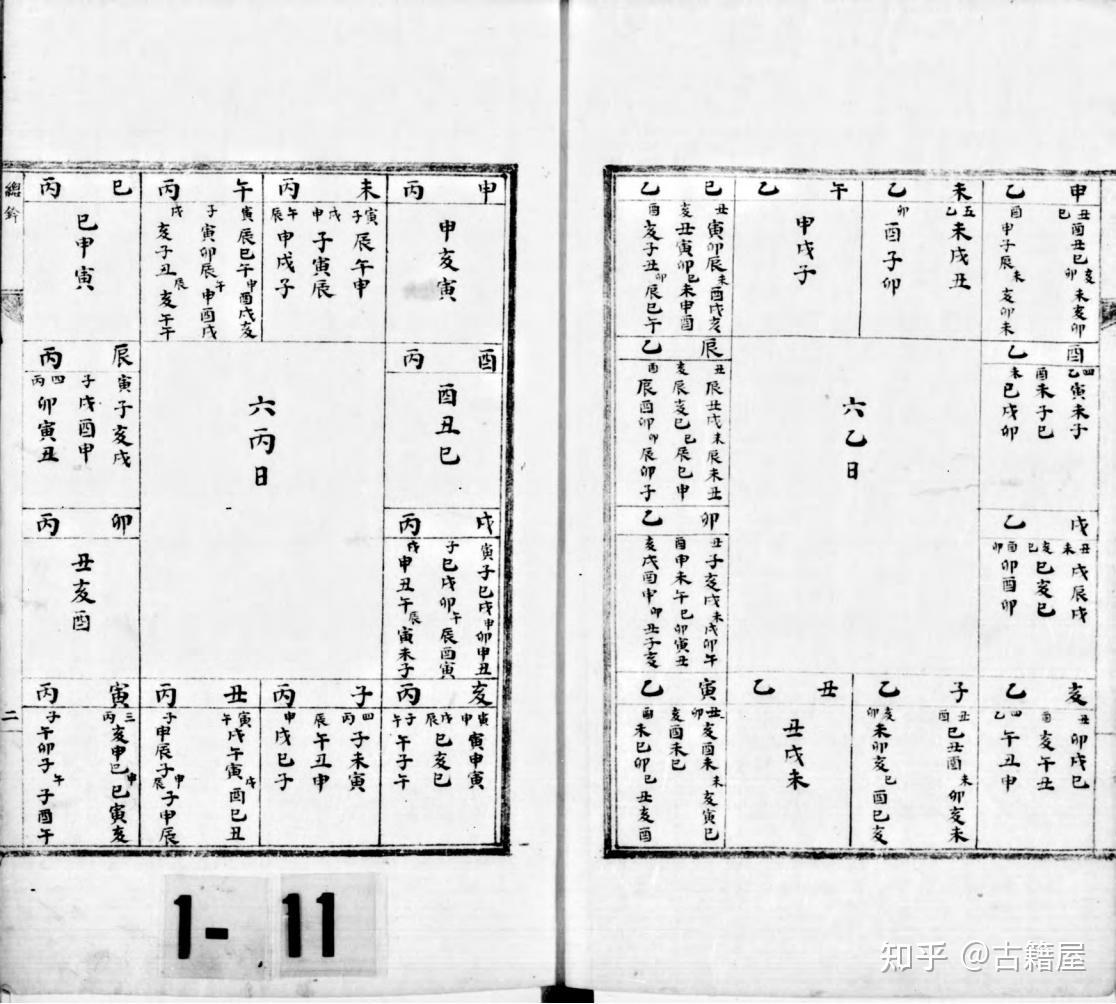 申 乙
丑巳酉丑巳亥卯未亥卯
酉申子辰未亥卯未
未 乙
五乙未戌丑
卯酉子卯
午 乙
甲戌子
巳 乙
丑寅卯辰未酉戌亥
亥丑寅卯巳未申酉
酉亥子丑卯辰巳午
酉 乙
四乙寅未子
酉未子巳
未巳戌卯
辰 乙
丑辰丑戌未辰未丑
亥辰亥巳巳辰巳申
酉辰酉卯卯辰卯子
六乙日
戌 乙
丑未戌辰戌
亥巳巳亥巳
酉卯卯酉卯
卯 乙
丑子亥戌未戌卯午
酉申未午巳卯寅丑
亥戌酉申卯丑子亥
亥 乙
丑卯戌巳
酉亥午丑
四乙午丑申
子 乙
丑酉巳丑酉未卯亥未
亥卯未卯亥巳酉巳亥
丑 乙
丑戌未
寅 乙
丑卯亥酉未未亥寅巳
亥亥酉未巳
酉未巳卯巳丑亥酉
申 丙
申亥寅
未 丙
寅子辰午申
戌申子寅辰
午辰申戌子
午 丙
寅辰巳午申酉戌亥
子寅卯辰午申酉戌
戌亥子丑辰亥午午
巳 丙
巳申寅
酉 丙
酉丑巳
辰 丙
寅子亥戌
子戌酉申
四丙卯寅丑
六丙日
戌 丙
寅子巳戌申卯申丑
子巳戌卯午辰酉寅
戌申丑午辰寅未子
卯 丙
丑亥酉
亥 丙
寅申寅申寅
戌辰巳亥巳
子午午子午
子 丙
四丙子未寅
辰午丑申
申戌巳子
丑 丙
寅午戌午寅戌酉巳丑
子申辰子申辰子申辰
寅 丙
三丙亥申巳申巳寅亥
子午卯子午子酉午
總鈐
二
1-11
知乎 @古籍屋